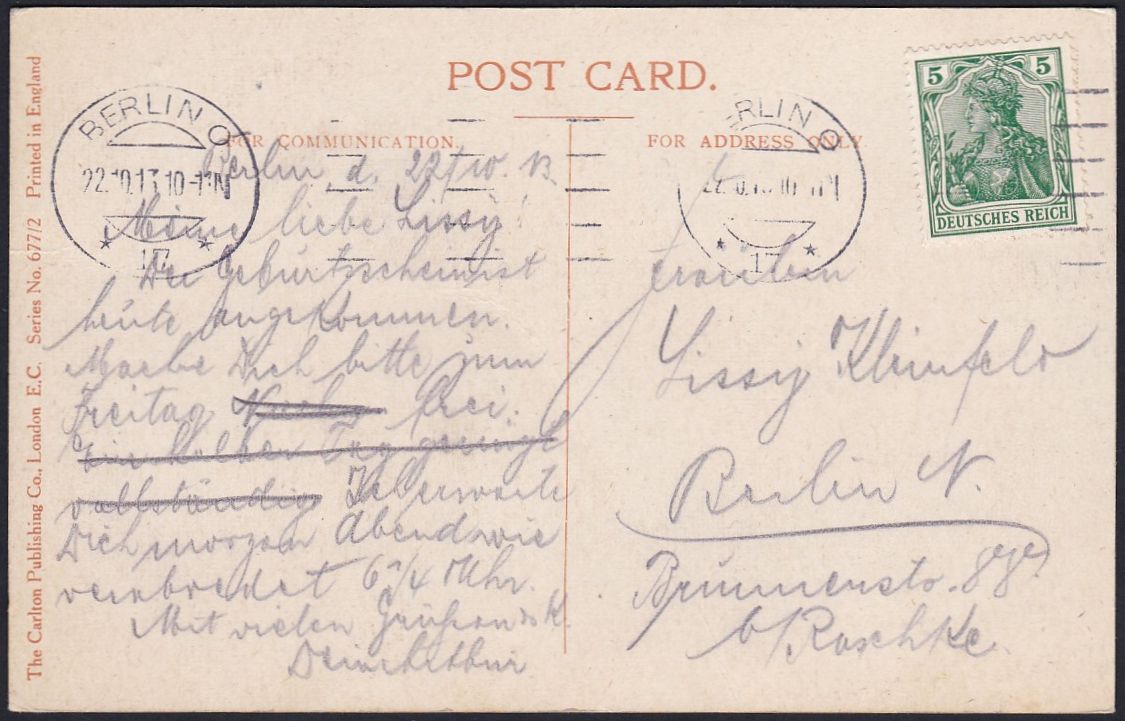 POST CARD.
FOR COMMUNICATION.
FOR ADDRESS ONLY
BERLIN O
22.10.13.10-11N
* 17 *
BERLIN O
22.10.13.10-11N
* 17 *
5 5
DEUTSCHES REICH
Berlin, d. 22/10. 13.
Meine liebe Lissy!
Der Geburtsschein ist
heute angekommen.
Mache Dich bitte zum
Freitag frei.
Ein halben Tag genügt
vollständig Ich erwarte
Dich morgen Abend wie
verabredet 6 3/4 Uhr.
Mit vielen Grüßen u. K.
Dein
Fräulein
Lissy Kleinfeld
Berlin N.
Brunnenstr.
b/Raschke
The Carlton Publishing Co., London E.C. Series No. 677/2 Printed in England